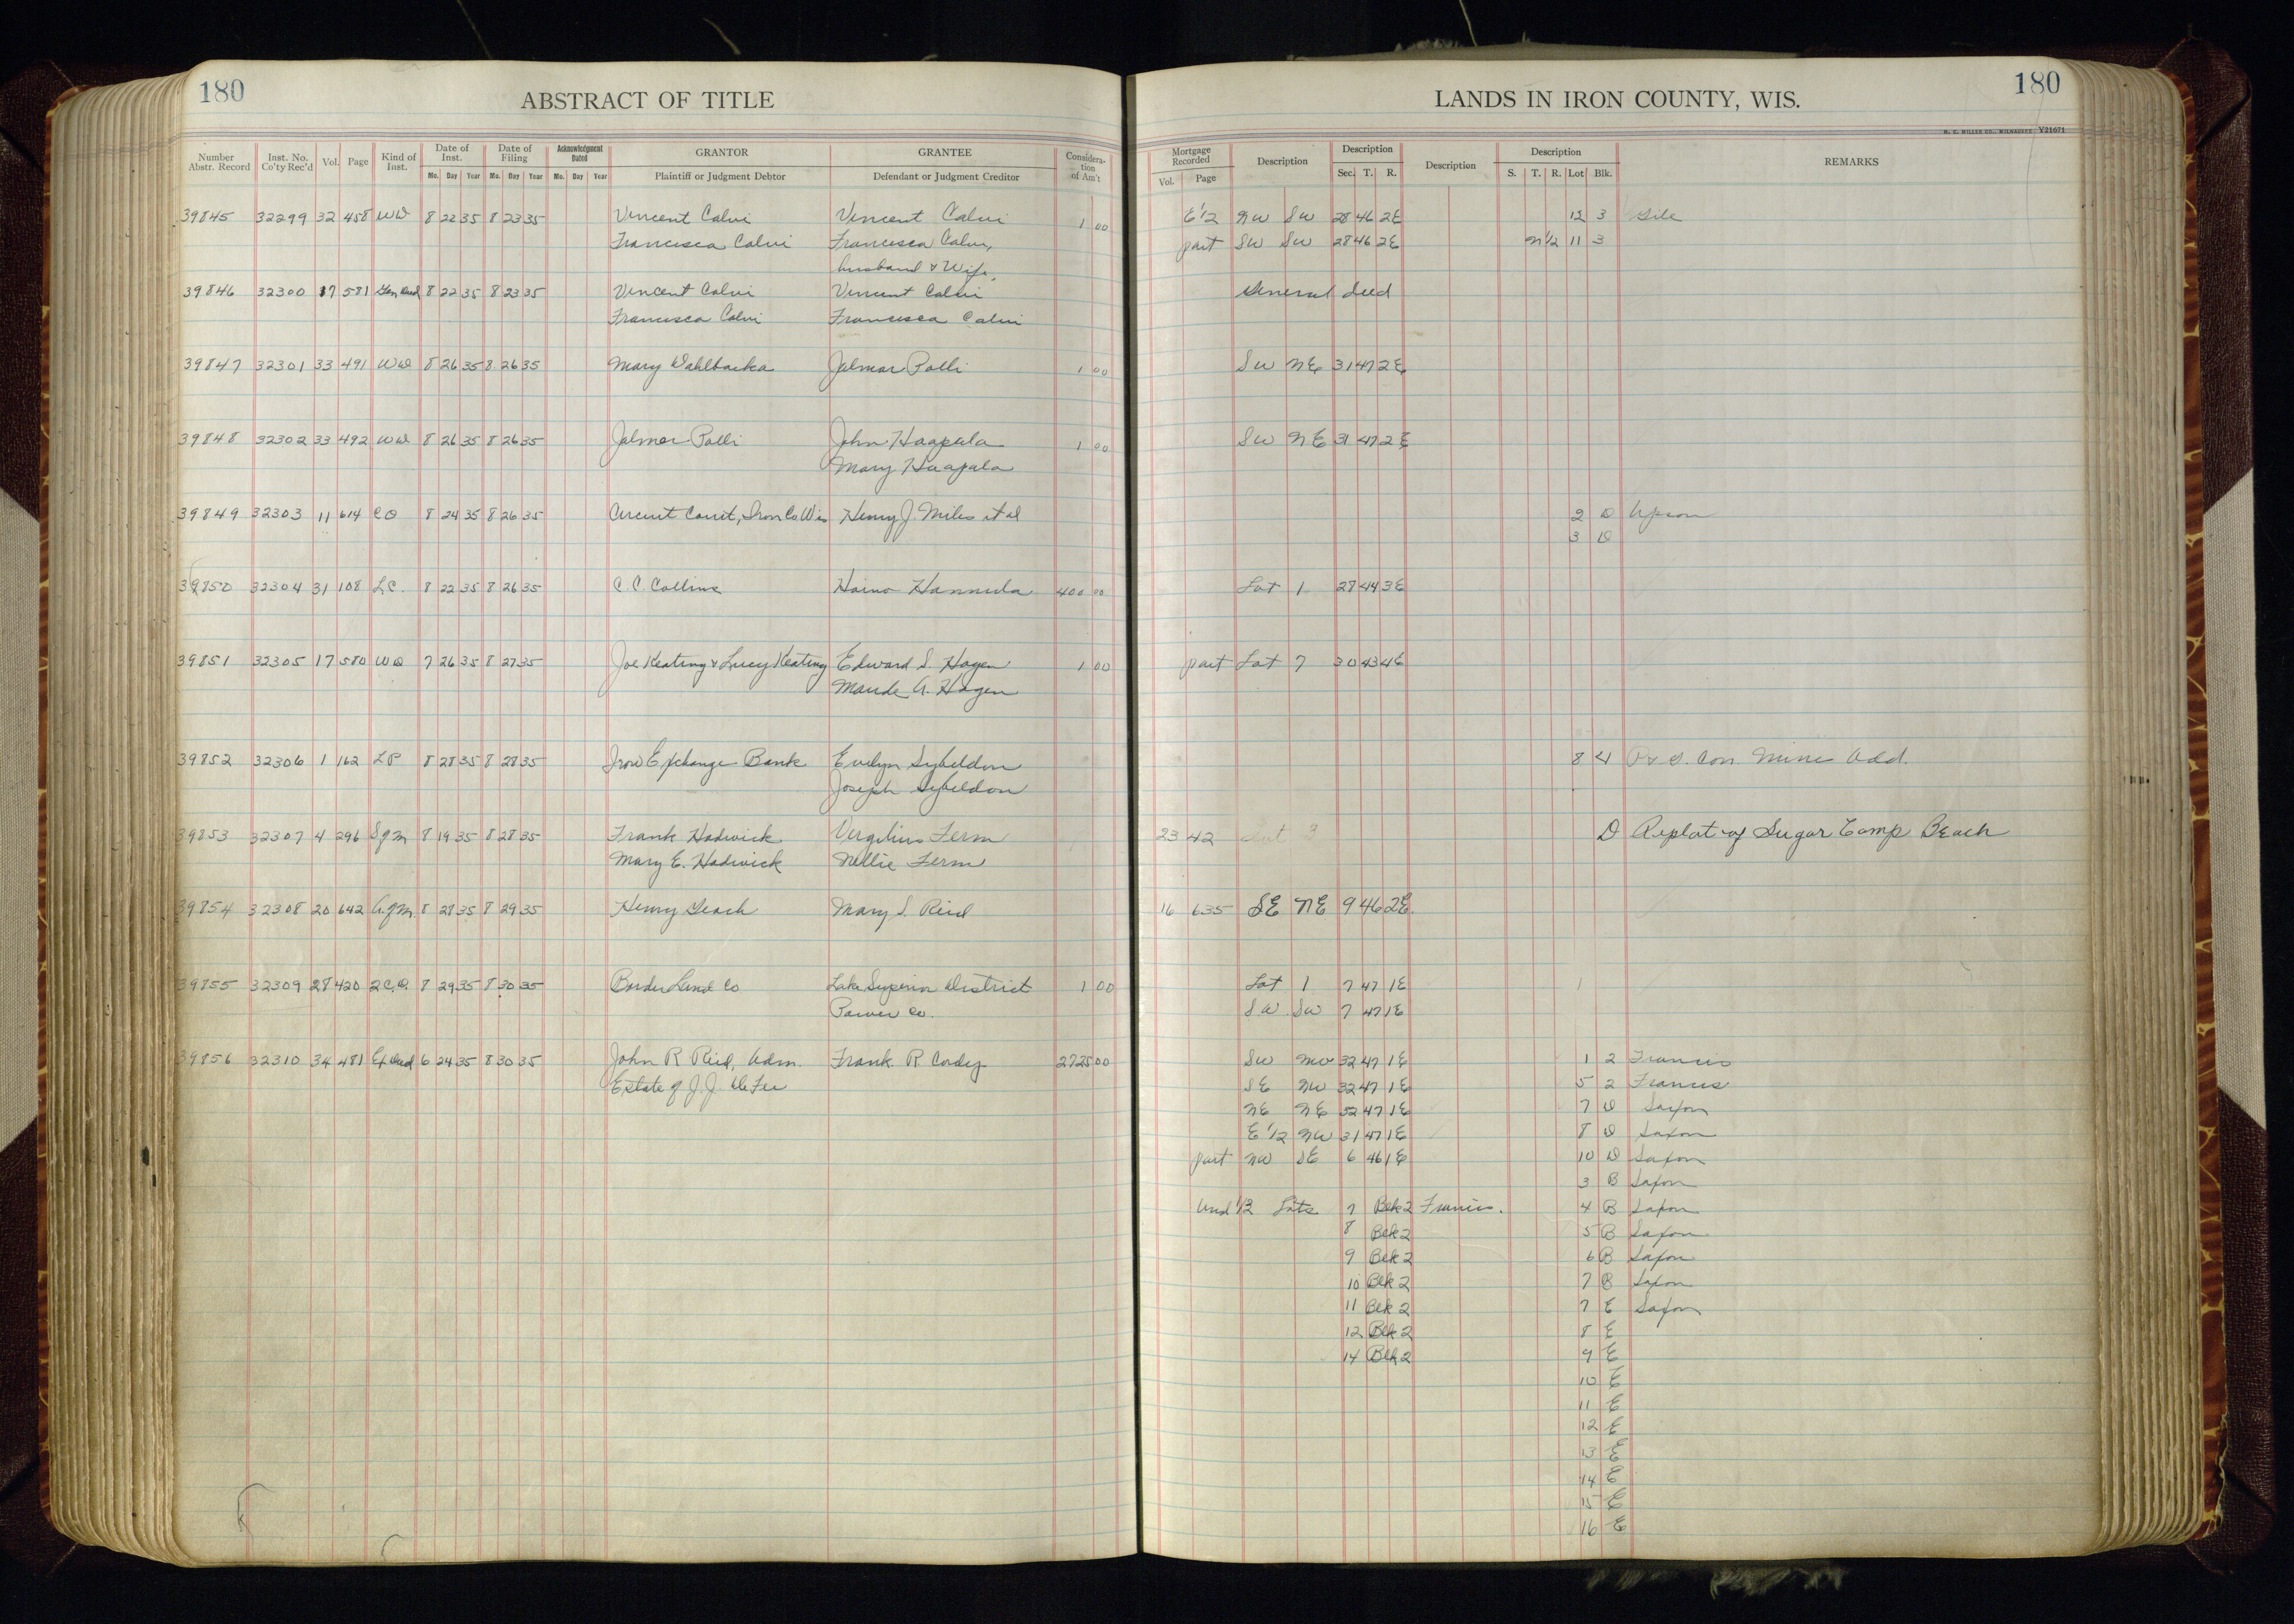 180
ABSTRACT OF TITLE
LANDS IN IRON COUNTY, WIS.
180
H. C. MILLER CO., MILWAUKEE Y21671
Number Abstr. Record Inst. No. Co'ty Rec'd Vol. Page Kind of Inst. Date of Inst. Mo. Day Year Date of Filing Mo. Day Year Acknowledgment Dated Mo. Day Year GRANTOR Plaintiff or Judgment Debtor GRANTEE Defendant or Judgment Creditor Considera-tion of Am't
Mortgage Recorded Vol. Page Description Description Sec. T. R. Description Description S. T. R. Lot Blk. REMARKS
39845 32299 32 458 WD 8 22 35 8 23 35 Vincent Calvi Vincent Calvi 1 00 E 1/2 NW SW 28 46 2E 12 3 Gile
Francisca Calvi Francisca Calvi, part SW SW 28 46 2E N 1/2 11 3
husband & Wife,
39846 32300 17 581 Gen Deed 8 22 35 8 23 35 Vincent Calvi Vincent Calvi General Deed
Francisca Calvi Francisca Calvi
39847 32301 33 491 WD 8 26 35 8 26 35 Mary Wahlbacka Jalmar Palli 1 00 SW NE 31 47 2E
39848 32302 33 492 WD 8 26 35 8 26 35 Jalmar Palli John Haapala 1 00 SW NE 31 47 2E
Mary Haapala
39849 32303 11 614 CO 8 24 35 8 26 35 Circuit Court, Iron Co Wis Henry J. Miles et al 2 D Upson
3 D
39850 32304 31 108 L.C. 8 22 35 8 26 35 C. C. Collins Haino Hannula 400 00 Lot 1 27 44 3E
39851 32305 17 580 WD 7 26 35 8 27 35 Joe Keating & Lucy Keating Edward S. Hagen 1 00 part Lot 7 30 43 4E
Maude A. Hagen
39852 32306 1 162 LP 8 28 35 8 28 35 Iron Exchange Bank Evelyn Sybeldon 8 4 Con. Mine Add.
Joseph Sybeldon
39853 32307 4 296 Sgm 8 19 35 8 28 35 Frank Hadwick Vergilius Ferm 23 42 Lot 3 D Replat of Sugar Camp Beach
Mary E. Hadwick Nellie Ferm
39854 32308 20 642 A.gm. 8 28 35 8 29 35 Henry Leach Mary S. Reid 16 635 SE NE 9 46 2E
39855 32309 28 420 2 C.D. 8 29 35 8 30 35 Border Land Co Lake Superior District 1 00 Lot 1 7 47 1E
Power Co. SW SW 7 47 1E
39856 32310 34 481 Ex Deed 6 24 35 8 30 35 John R Reid, Adm. Frank R. Cordy 2725 00 SW NW 32 47 1E 1 2 Francis
Estate of J. J. De Fer SE NW 32 47 1E 5 2 Francis
NE NE 32 47 1E 7 D Saxon
E 1/2 NW 31 47 1E 8 D Saxon
part NW SE 6 46 1E 10 D Saxon
3 B Saxon
Und 1/3 Lots 7 Blk 2 Francis. 4 B Saxon
8 Blk 2 5 B Saxon
9 Blk 2 6 B Saxon
10 Blk 2 7 B Saxon
11 Blk 2 7 E Saxon
12 Blk 2 8 E
14 Blk 2 9 E
10 E
11 E
12 E
13 E
14 E
15 E
16 E